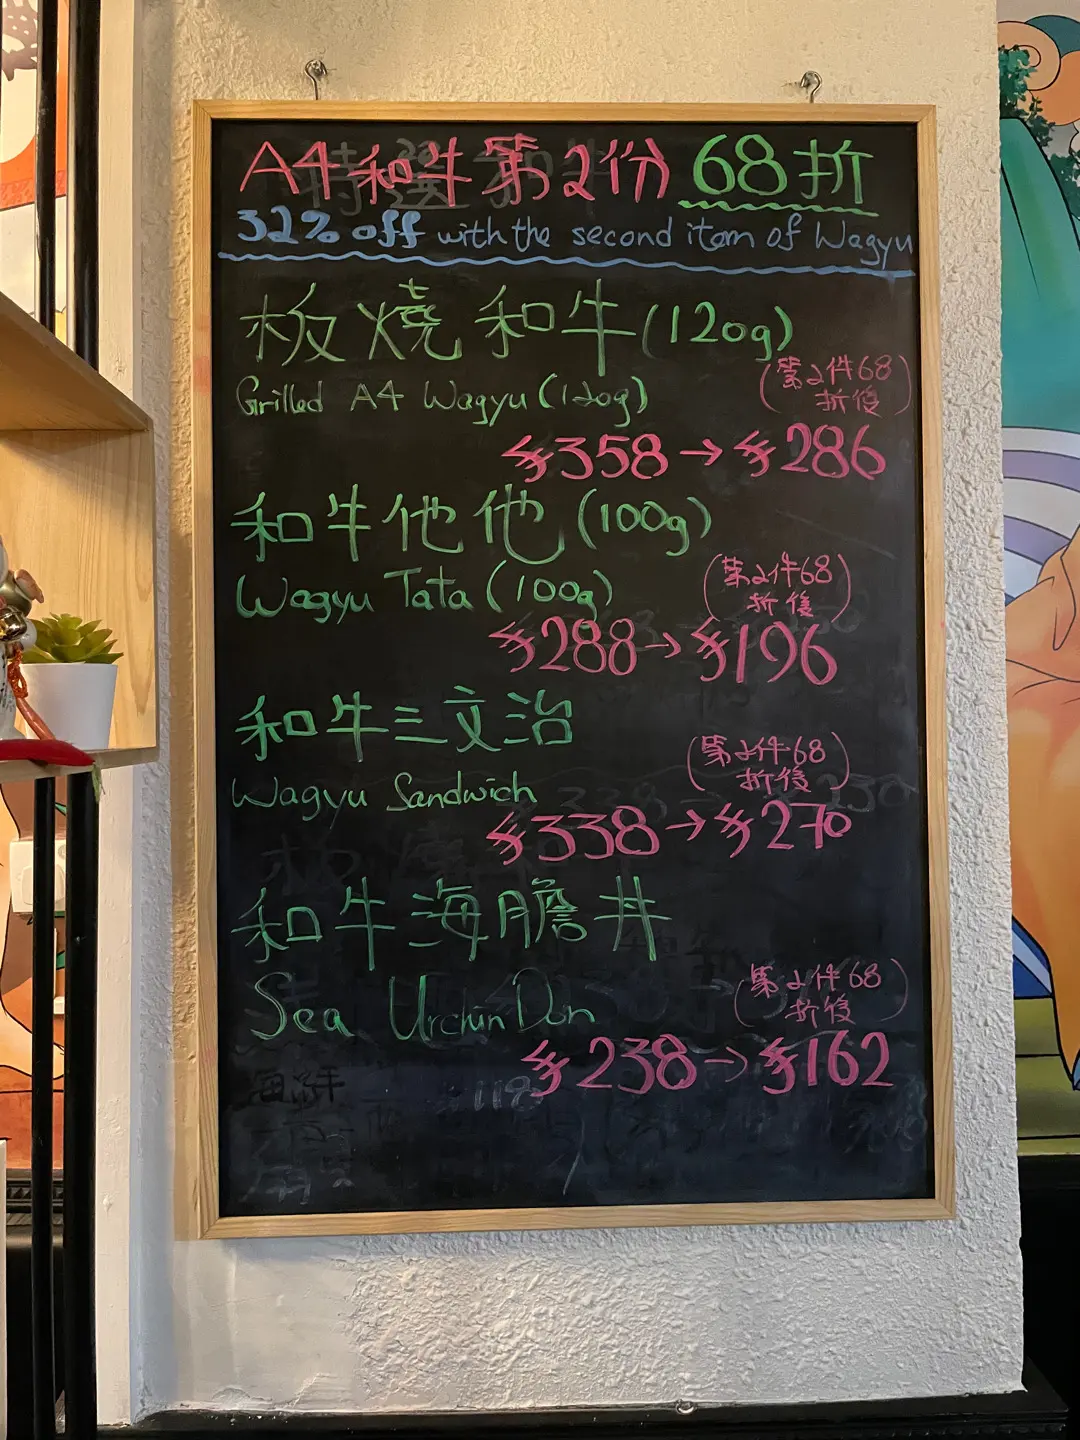 A4和牛第2份 68折
32% off with the second item of Wagyu
板燒和牛(120g)
Grilled A4 Wagyu (120g)
(第2件68
折後)
$358→$286
和牛他他(100g)
Wagyu Tata (100g)
(第2件68
折後)
$288→$196
和牛三文治
Wagyu Sandwich
(第2件68
折後)
$338→$270
和牛海膽丼
Sea Urchin Don
(第2件68
折後)
$238→$162